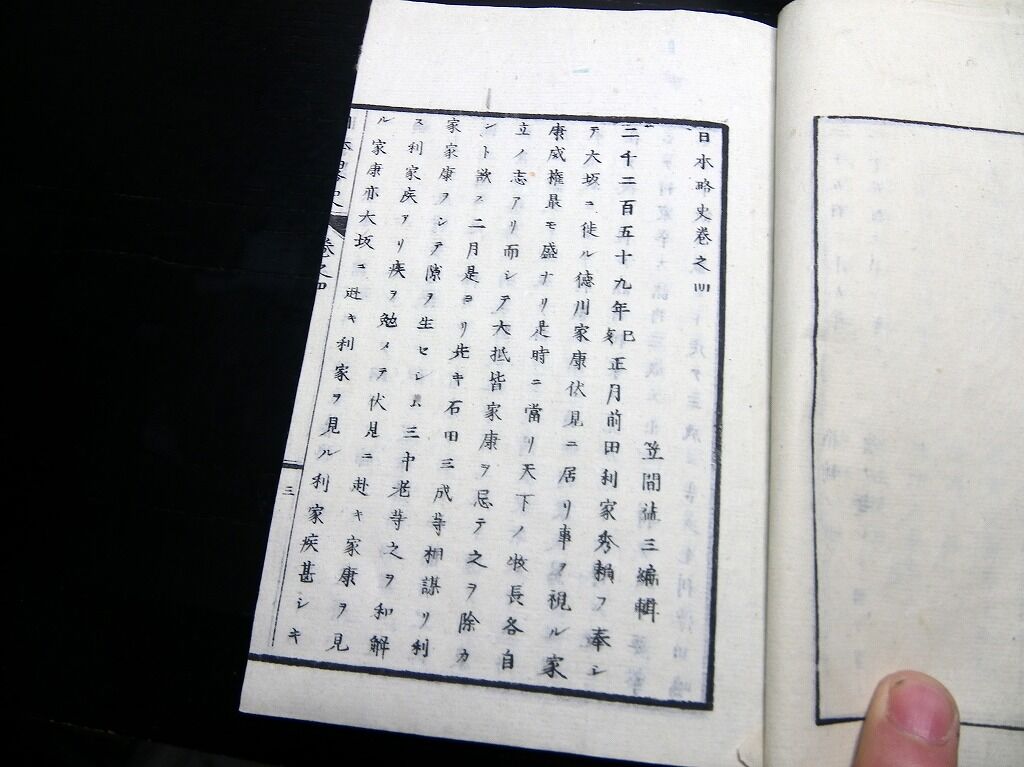 日本略史巻之四
笠間益三編輯
二千二百五十九年己亥正月前田利家秀頼ヲ奉シ
テ大坂ニ徙ル徳川家康伏見ニ居リ事ヲ視ル家
康威権最モ盛ナリ是時ニ當リ天下ノ牧長各自
立ノ志アリ而シテ大抵皆家康ヲ忌テ之ヲ除カ
ント欲ス二月是ヨリ先キ石田三成等相謀リ利
家家康ヲシテ隙ヲ生セシム三中老等之ヲ和解
ス利家疾アリ疾ヲ勉メテ伏見ニ赴キ家康ヲ見
ル家康亦大坂ニ赴キ利家ヲ見ル利家疾甚シキ
日本略史 巻之四 三